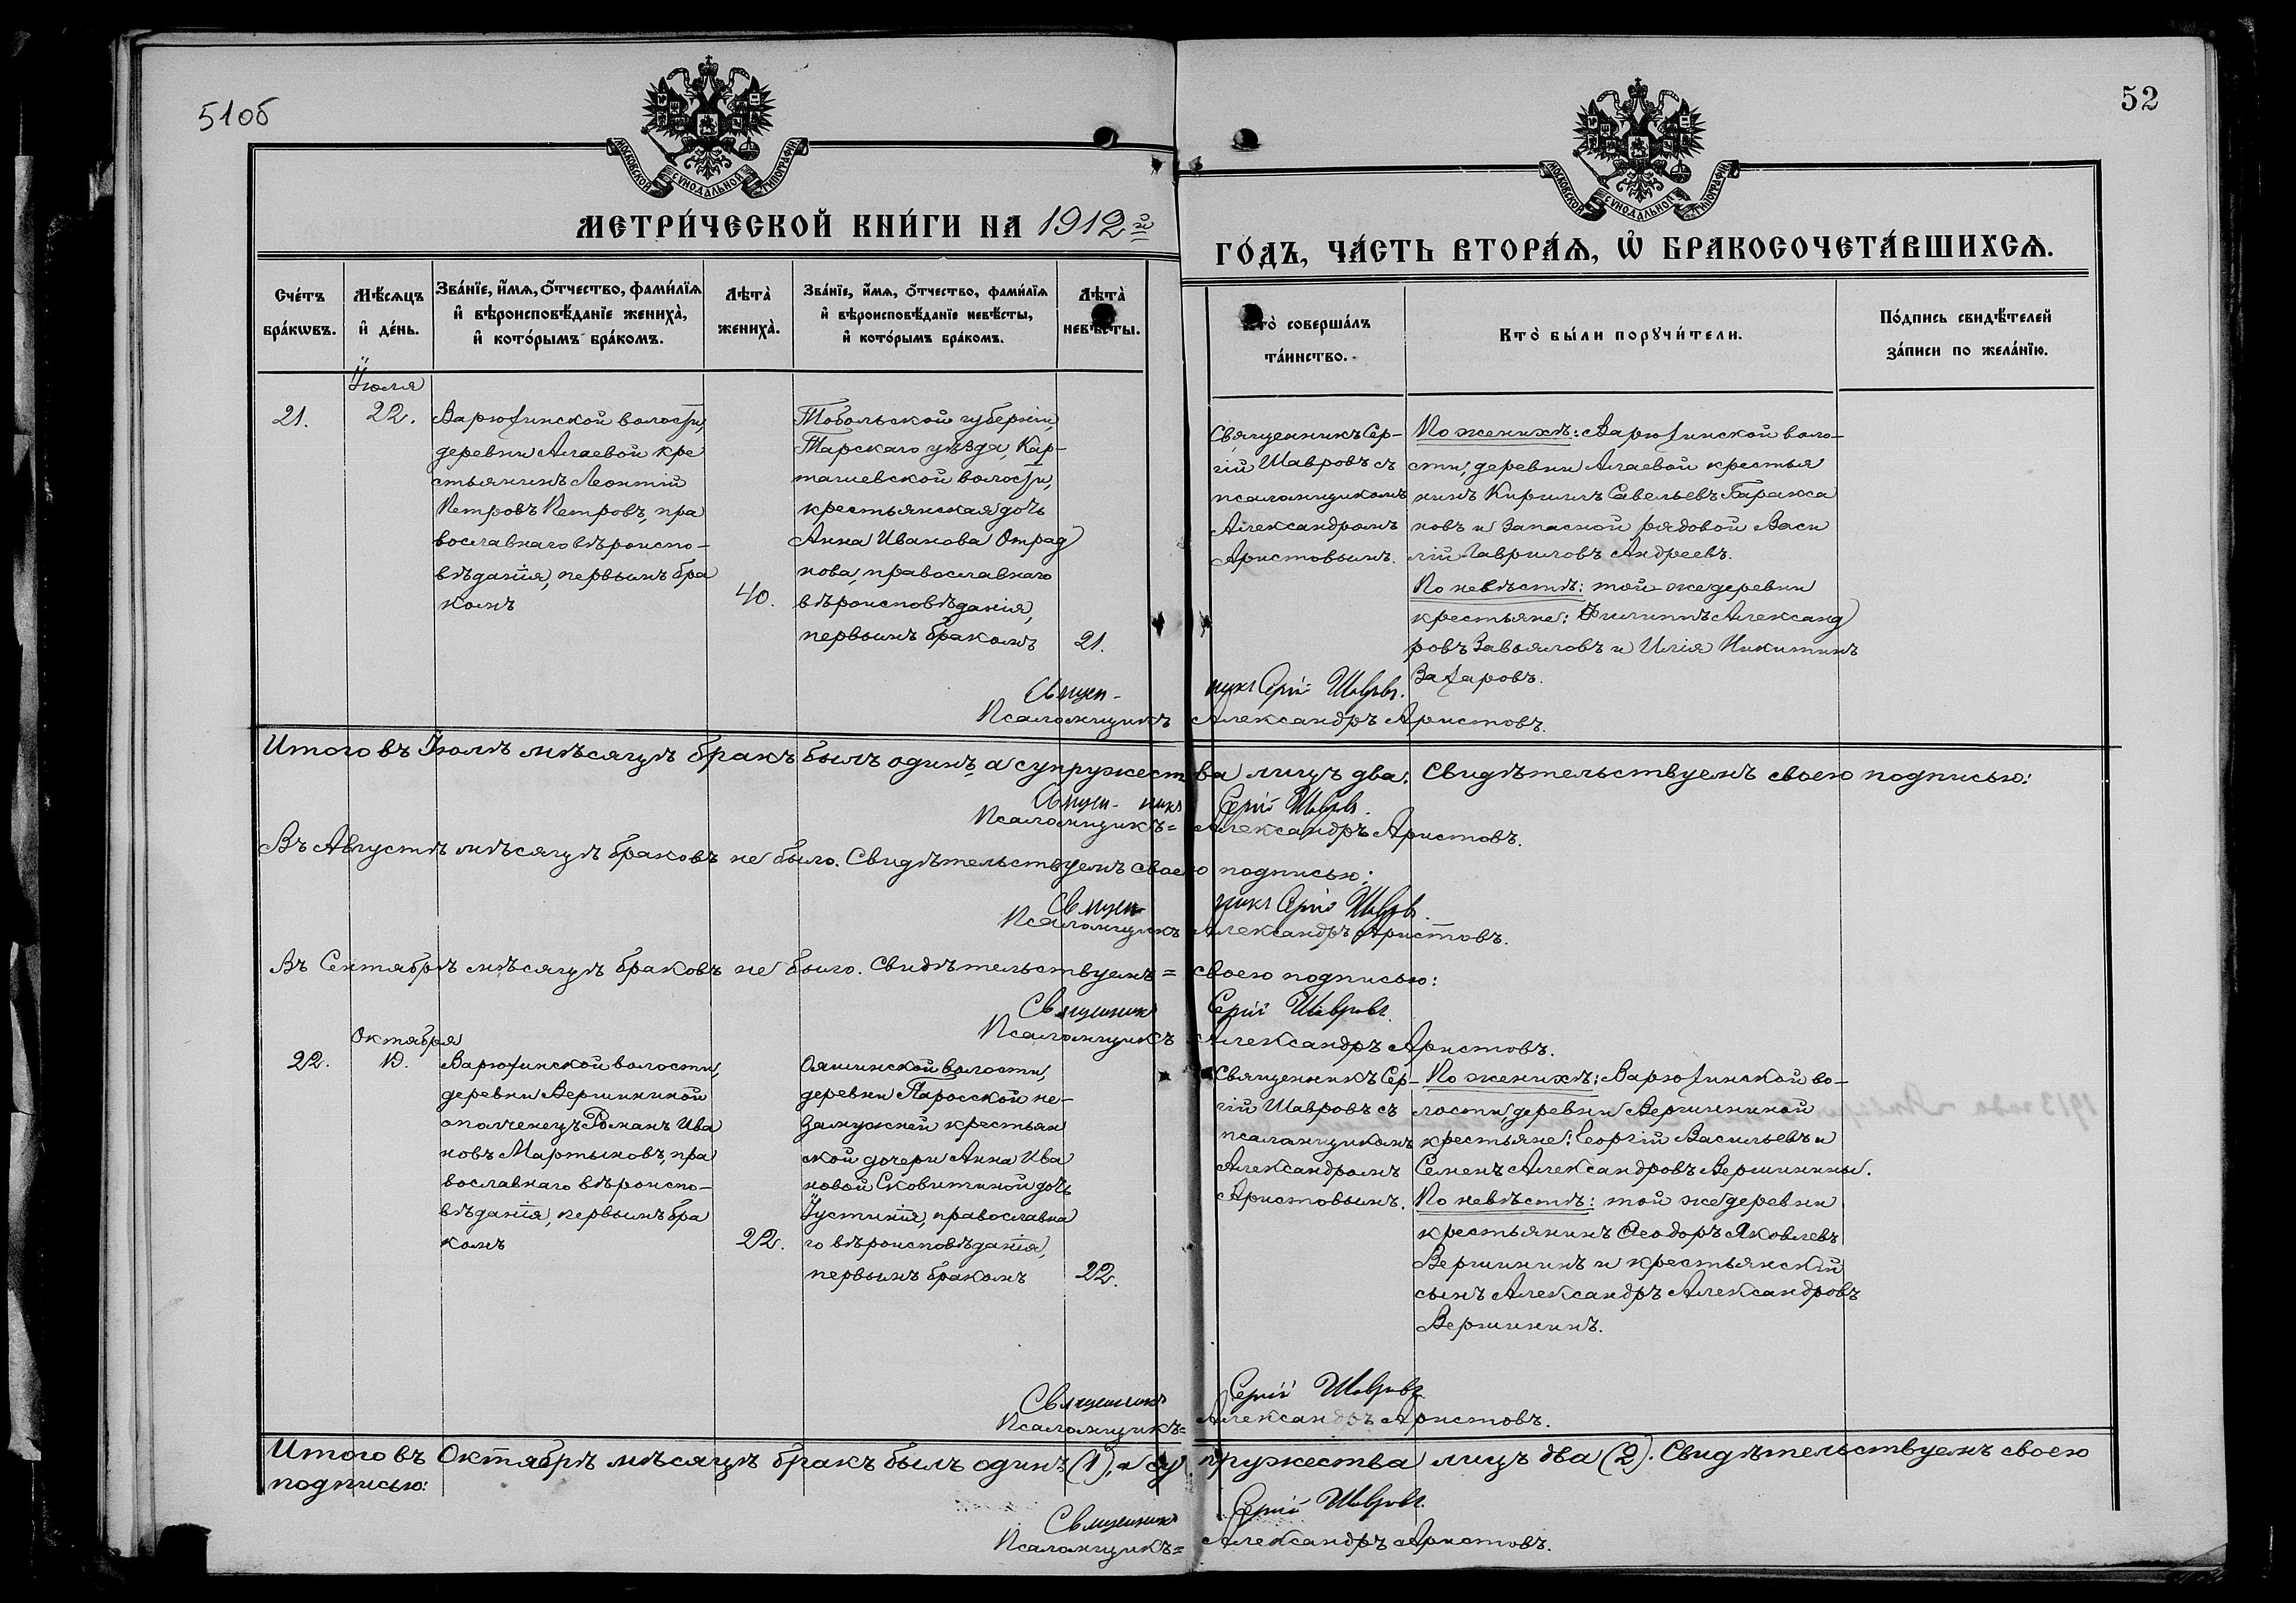 51об
МОСКОВСКОЙ СѴНОДАЛЬНОЙ ТИПОГРАФІИ
МЕТРИ́ЧЕСКОЙ КНИ́ГИ НА 1912й
Сче́тъ бра́кѡвъ.
Мѣ́сяцъ и҆ де́нь.
Зва́нїе, и҆́мя, ѻ҆́тчество, фами́лїя и҆ вѣроисповѣ́данїе жениха̀, и҆ кото́рымъ бра́комъ.
Лѣта̀ жениха̀.
Зва́нїе, и҆́мя, ѻ҆́тчество, фами́лїя и҆ вѣроисповѣ́данїе невѣ́сты, и҆ кото́рымъ бра́комъ.
Лѣта̀ невѣ́сты.
Іюля
21.
22.
Варюхинской волости,
деревни Алаевой кре
стьянинъ Леонтій
Петровъ Петровъ, пра
вославнаго вѣроиспо-
вѣданія, первымъ бра
комъ
40.
Тобольской губерніи,
Тарскаго уѣзда, Кар-
ташевской волости,
крестьянская дочь
Анна Иванова Отрад
нова, православнаго
вѣроисповѣданія,
первымъ бракомъ
21.
52
МОСКОВСКОЙ СѴНОДАЛЬНОЙ ТИПОГРАФІИ
ГО́ДЪ, ЧА́СТЬ ВТОРА́Я, Ѡ҆ БРАКОСОЧЕТА́ВШИХСЯ.
Кто̀ соверша́лъ та́инство.
Кто̀ бы́ли порꙋчи́тели.
По́дпись свидѣ́телей за́писи по жела́нїю.
Священникъ Сер-
гій Шавровъ съ
псаломщикомъ
Александромъ
Аристовымъ.
По женихѣ: Варюхинской воло-
сти, деревни Алаевой крестья
нинъ Кириллъ Савельевъ Баракса
новъ и запасной рядовой Васи
лій Гавриловъ Андреевъ.
По невѣстѣ: той же деревни
крестьяне: Филиппъ Александ
ровъ Завьяловъ и Илія Никитинъ
Захаровъ.
Священникъ Сергій Шавровъ.
Псаломщикъ Александръ Аристовъ.
Итого въ Іюлѣ мѣсяцѣ бракъ былъ одинъ, а супружества лицъ два; Свидѣтельствуемъ своею подписью:
Священникъ Сергій Шавровъ.
Псаломщикъ= Александръ Аристовъ.
Въ Августѣ мѣсяцѣ браковъ не было. Свидѣтельствуемъ своею подписью:
Священникъ Сергій Шавровъ.
Псаломщикъ Александръ Аристовъ.
Въ Сентябрѣ мѣсяцѣ браковъ не было. Свидѣтельствуемъ= своею подписью:
Священникъ Сергій Шавровъ.
Псаломщикъ Александръ Аристовъ.
Октября
22.
Варюхинской волости,
деревни Вершининой
ополченецъ Романъ Ива
новъ Мартыновъ, пра
вославнаго вѣроиспо-
вѣданія, первымъ бра
комъ
22.
Ояшинской волости,
деревни Паросской не-
замужней крестьян
ской дочери Анна Ива
новой Сковитиной дочь
Іустинія, православна
го вѣроисповѣданія,
первымъ бракомъ
22.
Священникъ Сер-
гій Шавровъ съ
псаломщикомъ
Александромъ
Аристовымъ.
По женихѣ: Варюхинской во-
лости, деревни Вершининой
крестьяне: Георгій Васильевъ и
Семенъ Александровъ Вершинины.
По невѣстѣ: той же деревни
крестьянинъ Ѳеодоръ Яковлевъ
Вершининъ и крестьянскій
сынъ Александръ Александровъ
Вершининъ.
Священникъ Сергій Шавровъ
Псаломщикъ= Александръ Аристовъ.
Итого въ Октябрѣ мѣсяцѣ бракъ былъ одинъ (1), а супружества лицъ два (2). Свидѣтельствуемъ своею
подписью:
Священникъ Сергій Шавровъ.
Псаломщикъ= Александръ Аристовъ.